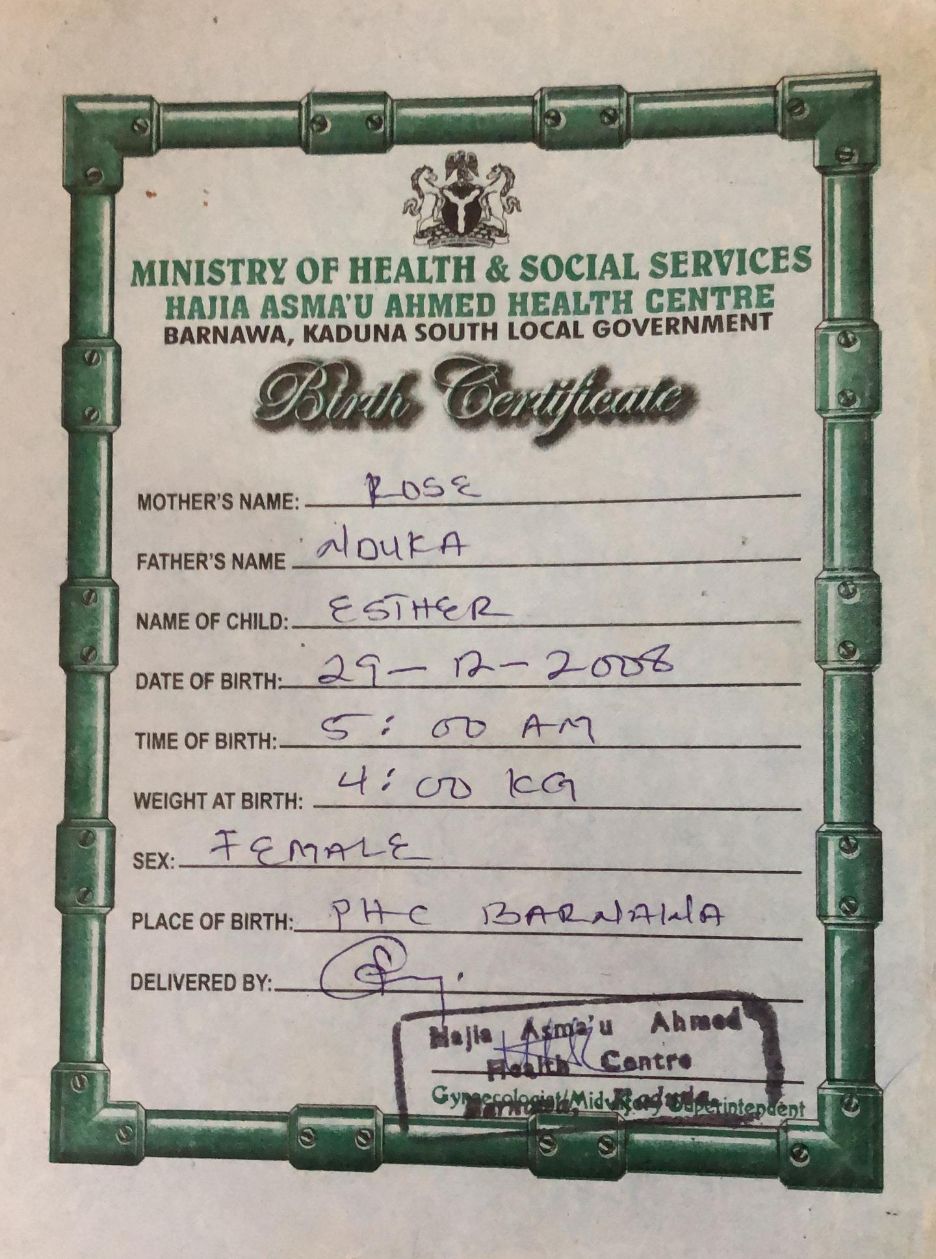 MINISTRY OF HEALTH & SOCIAL SERVICES
HAJIA ASMA'U AHMED HEALTH CENTRE
BARNAWA, KADUNA SOUTH LOCAL GOVERNMENT
Birth Certificate
MOTHER'S NAME: ROSE
FATHER'S NAME NDUKA
NAME OF CHILD: ESTHER
DATE OF BIRTH: 29-12-2008
TIME OF BIRTH: 5:00 AM
WEIGHT AT BIRTH: 4:00 KG
SEX: FEMALE
PLACE OF BIRTH: PHC BARNAWA
DELIVERED BY:
Hajia Asma'u Ahmed
Health Centre
Gynaecologist/Midwifery Superintendent
Barnawa, Kaduna.